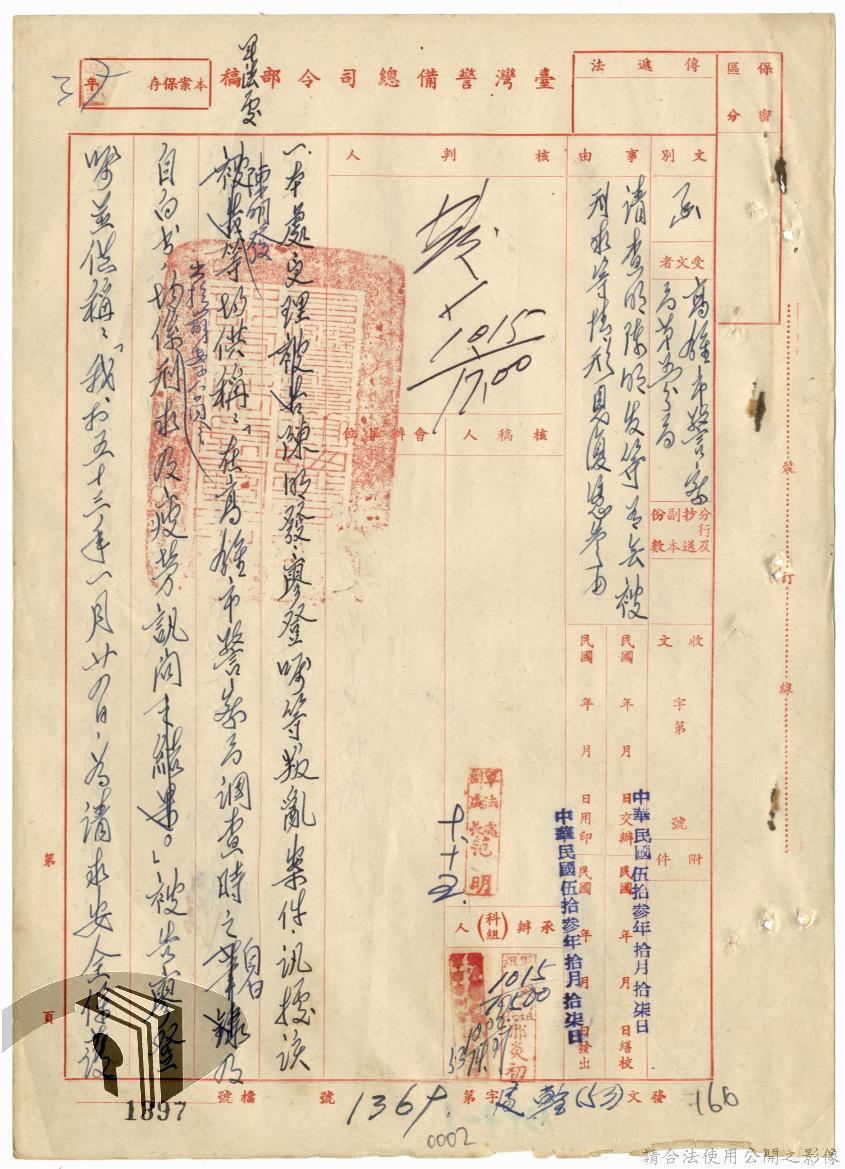 保密區分
傳遞法
臺灣警備總司令部稿
軍法處
本案保存
年
文別
函
受文者
高雄市警察局第五分局
分行及抄送副本份數
事由
請查明陳明發等有無被刑求等情形見復憑參由
收文
字第
號
附件
民國 年 月 日交辦
民國 年 月 日繕校
民國 年 月 日用印
民國 年 月 日發出
中華民國伍拾參年拾月拾柒日
中華民國伍拾參年拾月拾柒日
核判人
10 15
17,00
核稿人
會辦單位
軍法處副處長范明
十、十五
承辦(科組)人
10 15
1500
邢炎初
一、本處受理被告陳明發、廖登囑等叛亂案件、訊據該
陳明發
被告等均供稱:「在高雄市警察局調查時之自白
筆錄及
自白書、均係刑求及疲勞訊問之結果。」被告廖登
囑並供稱:「我於五十三年一月廿四日、為請求安全
裝
訂
線
第
頁
發文
(53)
字第
1369
號
檔號
1397
160
0002
請合法使用公開之影像